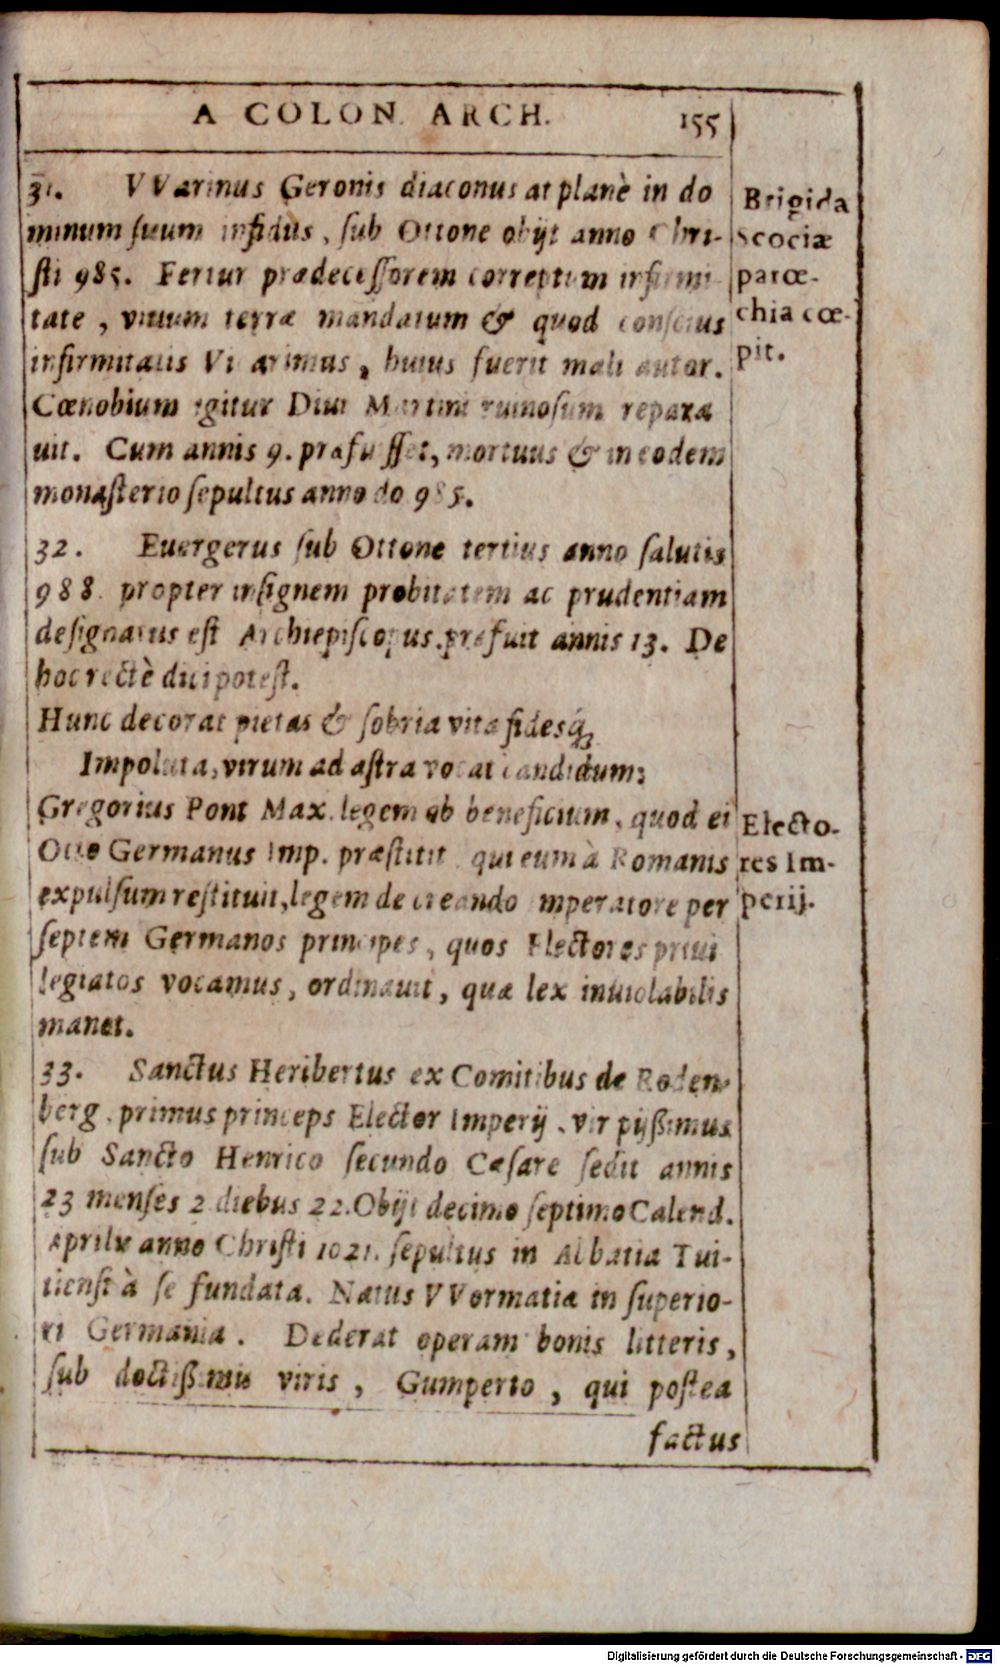 A COLON. ARCH. 155
31. VVarinus Geronis diaconus at planè in do
minum suum infidus, sub Ottone obijt anno Chri-
sti 985. Fertur prædecessorem correptum infirmi
tate, viuum terræ mandatum & quod conscius
infirmitatis VVarimus, huius fuerit mali autor.
Cœnobium igitur Diui Martini ruinosum repara
uit. Cum annis 9. præfuisset, mortuus & in eodem
monasterio sepultus anno do 985.
Brigida
Scociæ
paroe-
chia cœ-
pit.
32. Euergerus sub Ottone tertius anno salutis
988. propter insignem probitatem ac prudentiam
designatus est Archiepiscopus. præfuit annis 13. De
hoc rectè dici potest.
Hunc decorat pietas & sobria vita fidesq́;
Impoluta, virum ad astra vocat candidum:
Gregorius Pont Max. legem ob beneficium, quod ei
Otto Germanus Imp. præstitit qui eum à Romanis
expulsum restituit, legem de creando mperatore per
septem Germanos principes, quos Electores priui
legiatos vocamus, ordinauit, quæ lex inuiolabilis
manet.
Electo-
res Im-
perij.
33. Sanctus Heribertus ex Comitibus de Roden-
berg. primus princeps Elector Imperij. vir pijßimus
sub Sancto Henrico secundo Cæsare sedit annis
23 menses 2 diebus 22. Obijt decimo septimo Calend.
Aprilis anno Christi 1021. sepultus in Abbatia Tui-
tiensi à se fundata. Natus VVormatiæ in superio-
ri Germania. Dederat operam bonis litteris,
sub doctißimis viris, Gumperto, qui postea
factus
Digitalisierung gefördert durch die Deutsche Forschungsgemeinschaft - DFG